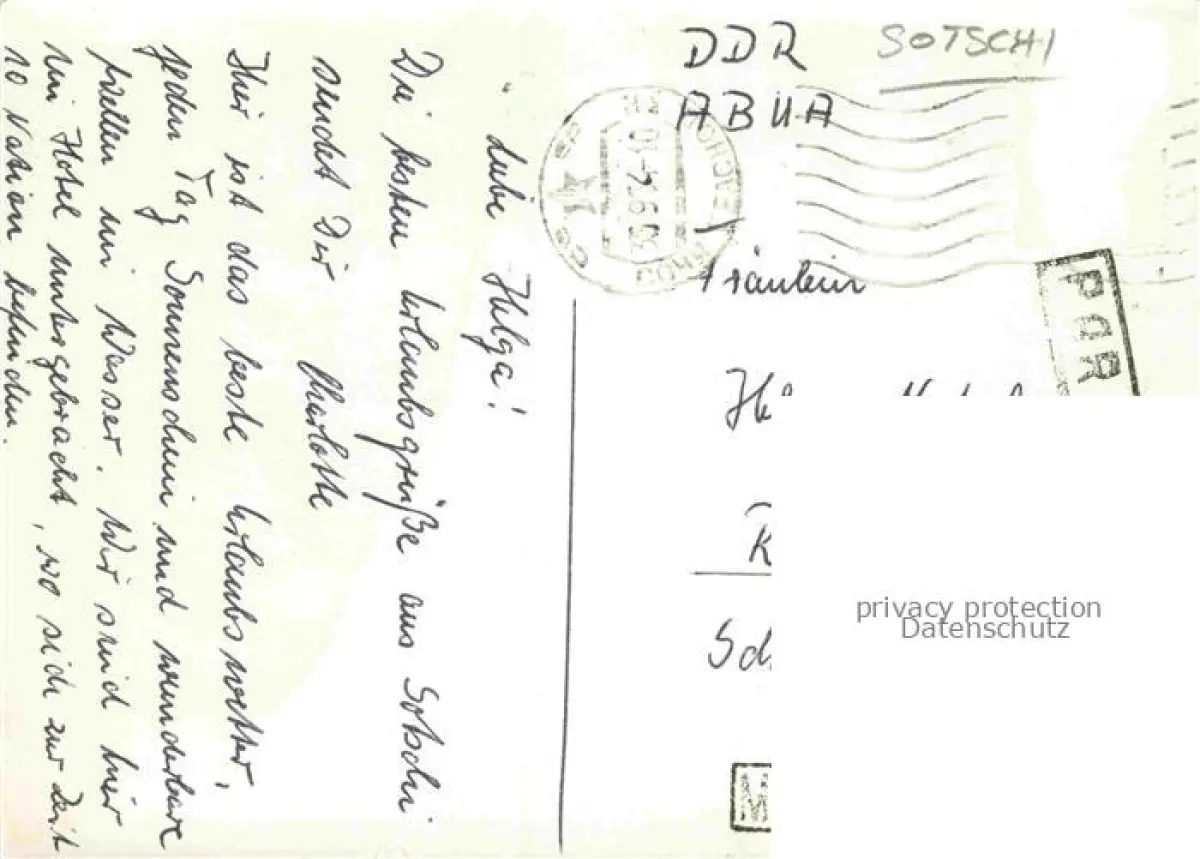 Liebe Helga!
Die besten Urlaubsgrüße aus Sotschi
sendet Dir Charlotte
Hier ist das beste Urlaubswetter,
jeden Tag Sonnenschein und wunderbare
Wellen im Wasser. Wir sind hier
im Hotel untergebracht, wo sich zur Zeit
10 Nation befinden.
DDR
SOTSCHI
АВИА
Fräulein
PAR
M
privacy protection
Datenschutz